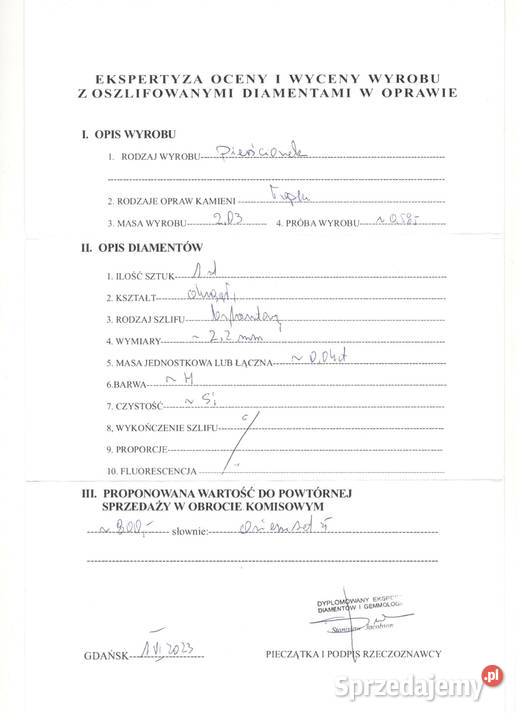 EKSPERTYZA OCENY I WYCENY WYROBU
Z OSZLIFOWANYMI DIAMENTAMI W OPRAWIE
I. OPIS WYROBU
1. RODZAJ WYROBU Pierścionek
2. RODZAJE OPRAW KAMIENI
3. MASA WYROBU 2,03 4. PRÓBA WYROBU ~ 0,585
II. OPIS DIAMENTÓW
1. ILOŚĆ SZTUK
2. KSZTAŁT okrągły
3. RODZAJ SZLIFU
4. WYMIARY ~ 2,2 mm
5. MASA JEDNOSTKOWA LUB ŁĄCZNA ~ 0,04ct
6.BARWA ~ H
7. CZYSTOŚĆ ~ Si
8, WYKOŃCZENIE SZLIFU
9. PROPORCJE
10. FLUORESCENCJA
III. PROPONOWANA WARTOŚĆ DO POWTÓRNEJ
SPRZEDAŻY W OBROCIE KOMISOWYM
~ 800,- słownie: osiemset zł
DYPLOMOWANY EKSPERT
DIAMENTÓW I GEMMOLOG
Stanisław Jacobson
GDAŃSK 1 VI 2023 PIECZĄTKA I PODPIS RZECZOZNAWCY
Sprzedajemy.pl